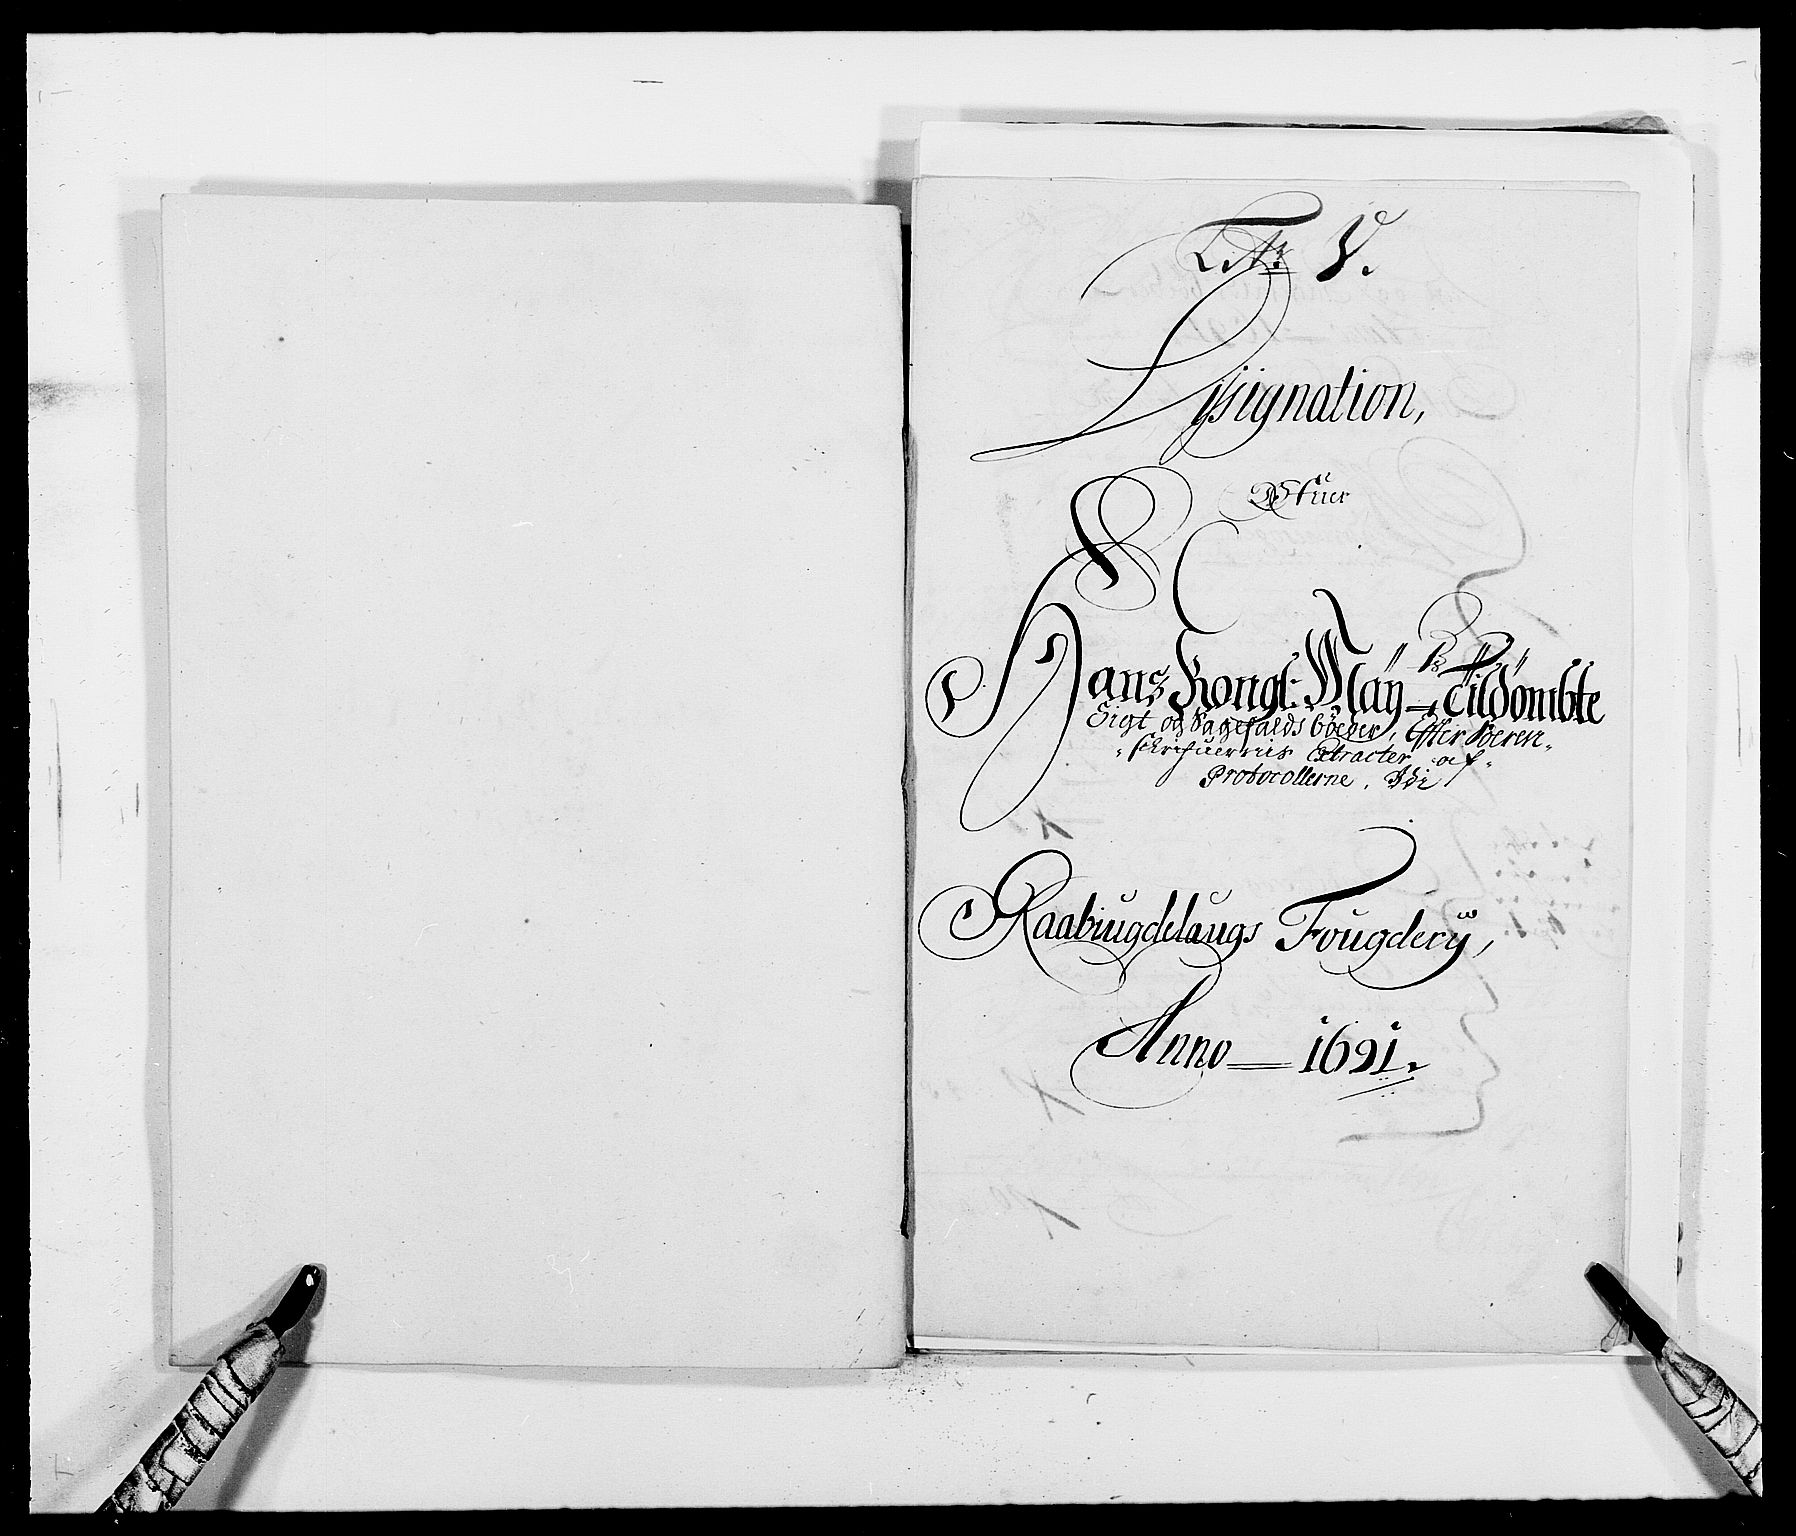 Litr: V.
Designation,
Ofuer
Hans Kongl: Maÿ<sup>tz</sup> Tildömbte
Sigt og Sagefalds bøeder, Effter Soren-
-schrifuernis Extracter af
Protocollerne, Udi
Raabÿugdelaugs Fougderÿ,
Anno — 1691.